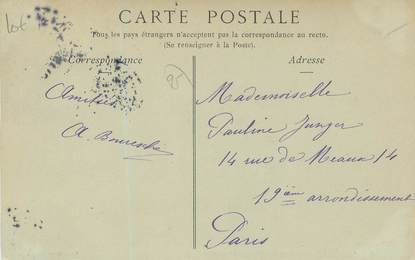 Lot
CARTE POSTALE
Tous les pays étrangers n'acceptent pas la correspondance au recto.
(Se renseigner à la Poste).
Correspondance
Adresse
Amitiés
A.
Mademoiselle
Pauline Junger
14 rue de Meaux 14
19ième arrondissement
Paris